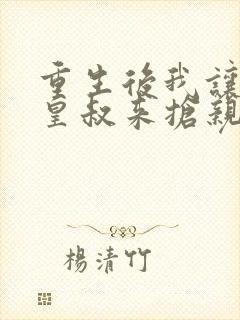 重生後我讓
皇叔来搶親
楊清竹